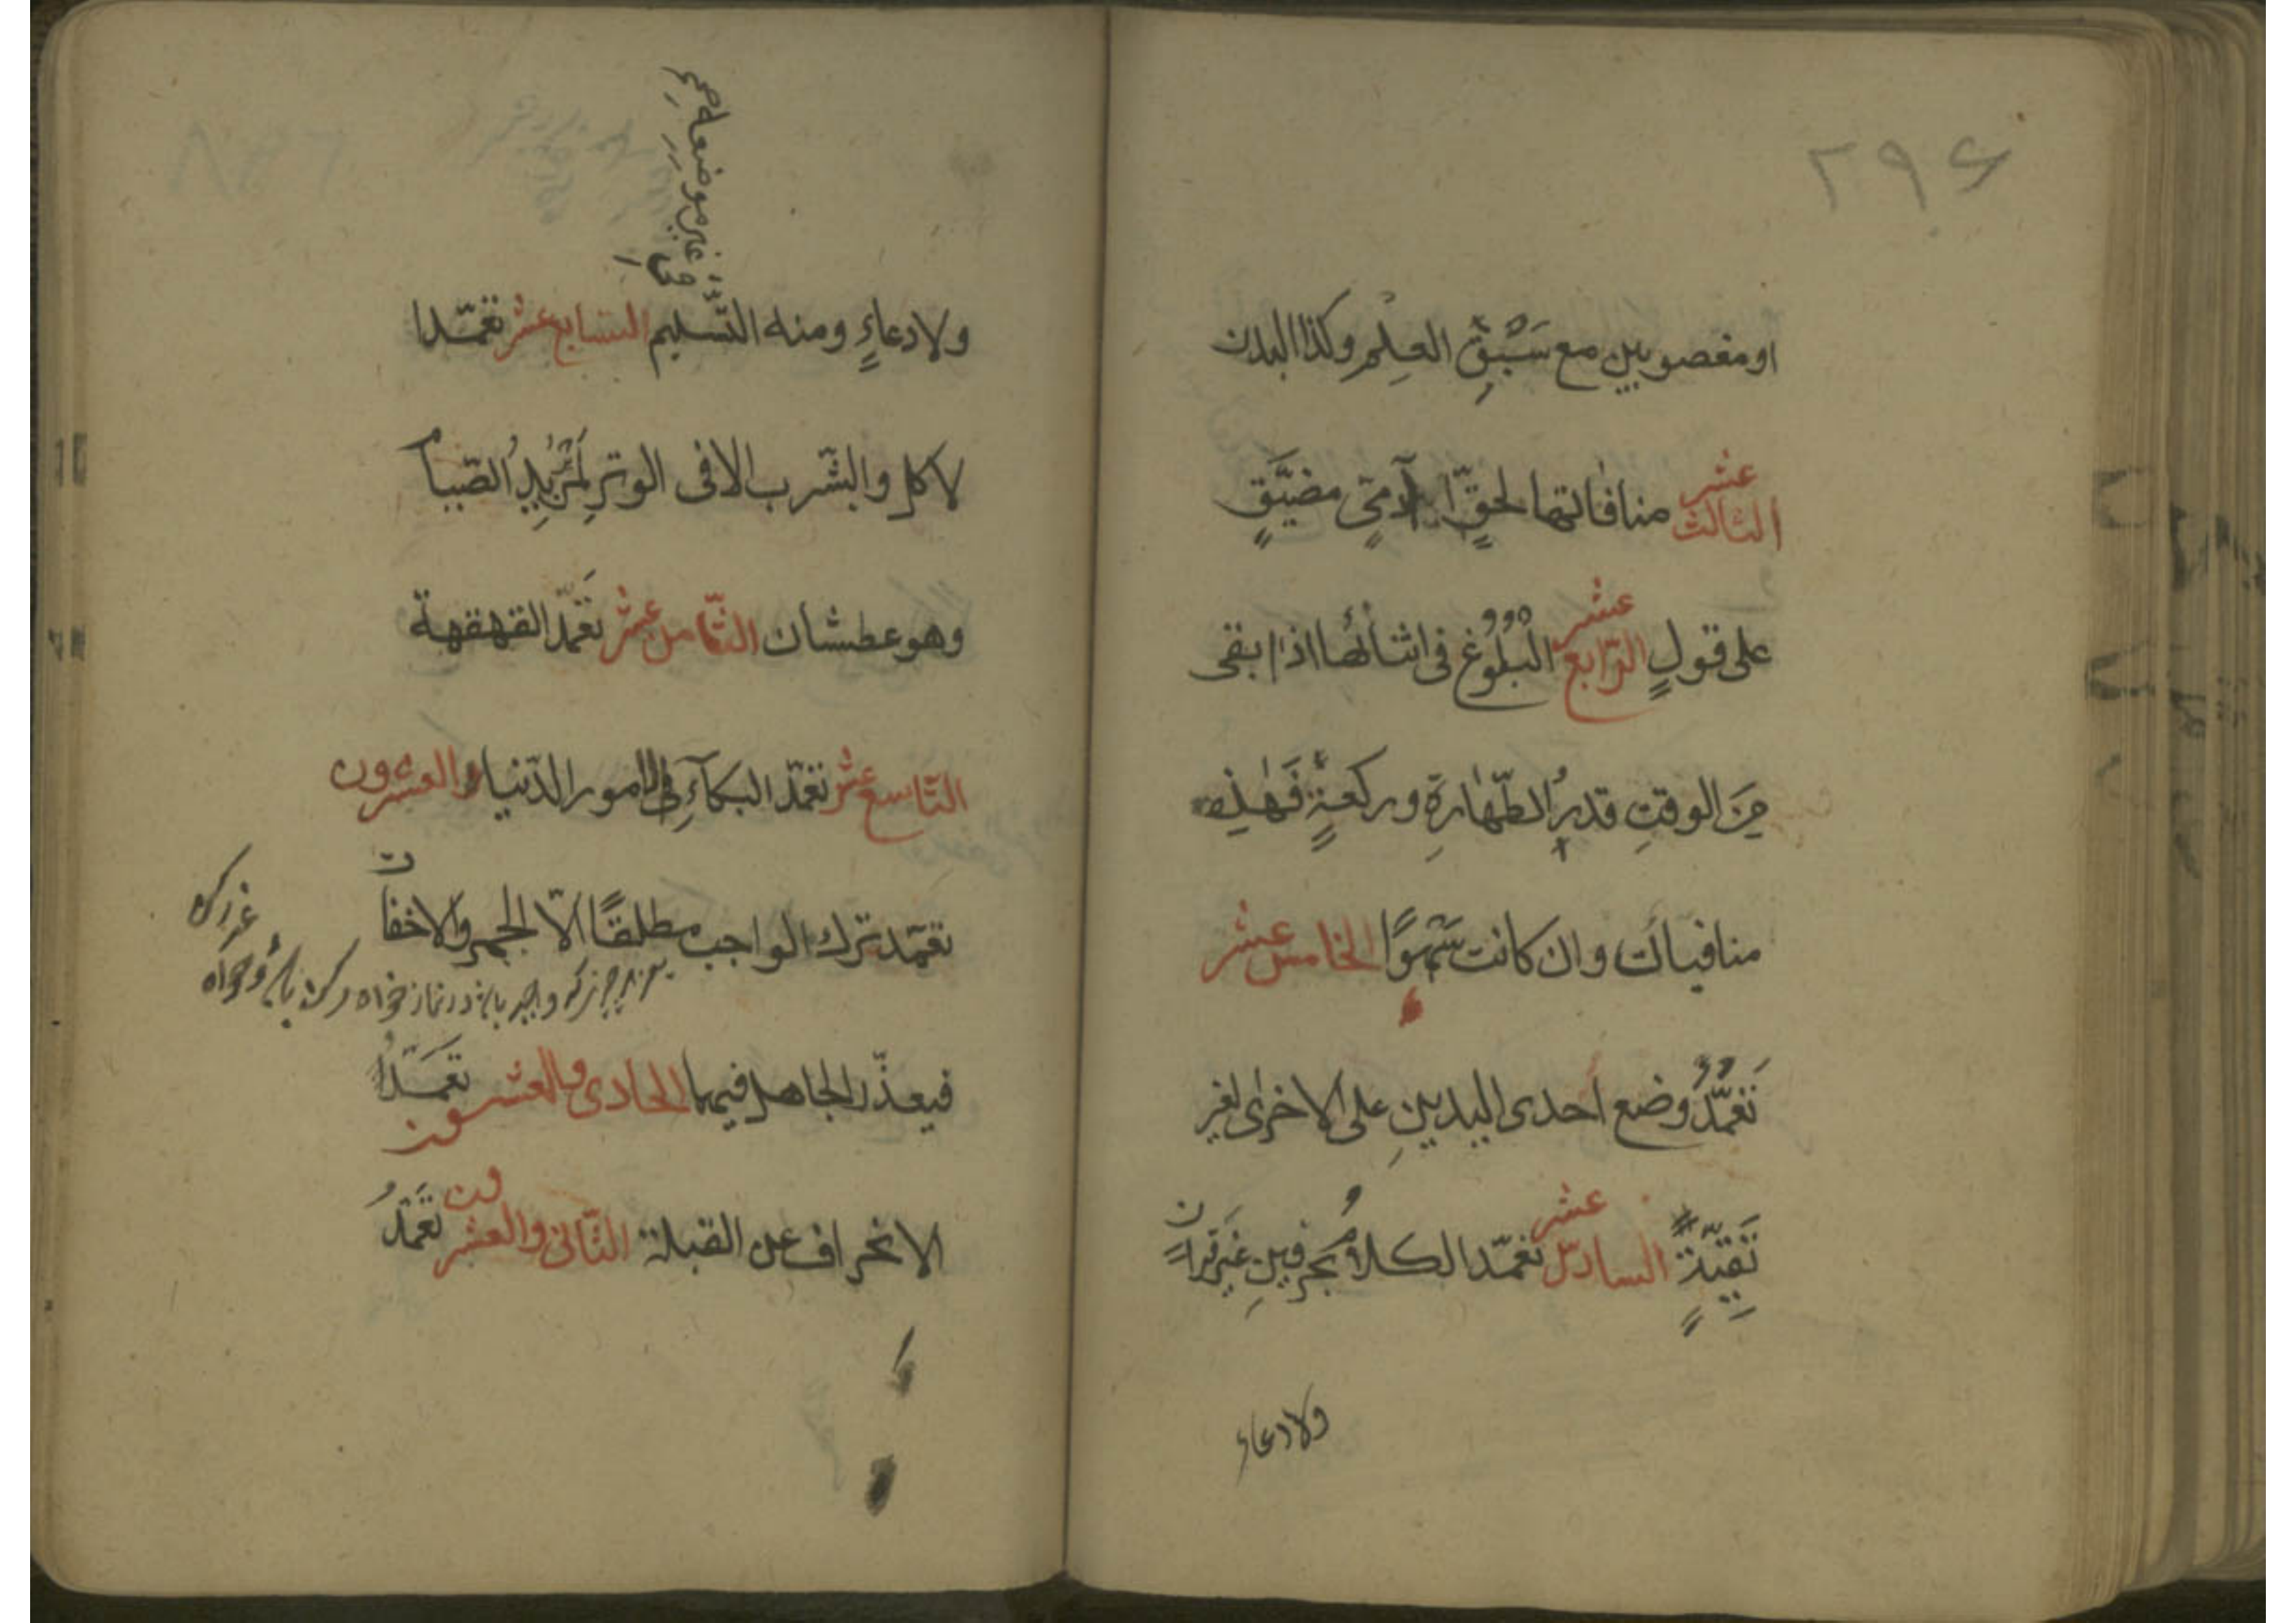 ۲۹۶
او مغصوبين مع سَبْقِ العِلْمِ وكذا البدن
الثالث عشر منافاتها لحقٍّ آدمیٍّ مضيَّقٍ
على قولٍ الرّابع عشر البُلُوغ فى اثنائها اذا بقى
مِنَ الوقتِ قدرُ الطّهارةِ وركعةٍ فَهٰذِه
منافيات وان كانت سَهْوًا الخامس عشر
تَعَمُّدُ وضع احدى اليدينِ على الاخرى لغير
تَقِيَّةٍ السادس عشر تعمّد الكلام بحرفينِ غَيرَ قرانٍ
ولا دعاء
فى غير موضعه
ولا دعاءٍ ومنه التّسليم السّابع عشر تعمّد ا
لاكل والشّرب الا فى الوترِ لمَنْ يُرِيدُ الصّيام
وهو عطشان الثّامن عشر تَعَمّد القهقهة
التّاسع عشر تعمّد البكآءِ فى الامور الدّنيا والعشرون
تعمّد ترك الواجب مطلقًا الّا الجهر والاخفات
فيعذّر الجاهل فيهما الحادى والعشرون تَعَمَّدُ
الانحراف عن القبلة الثّانى والعشرون تَعَمّدُ